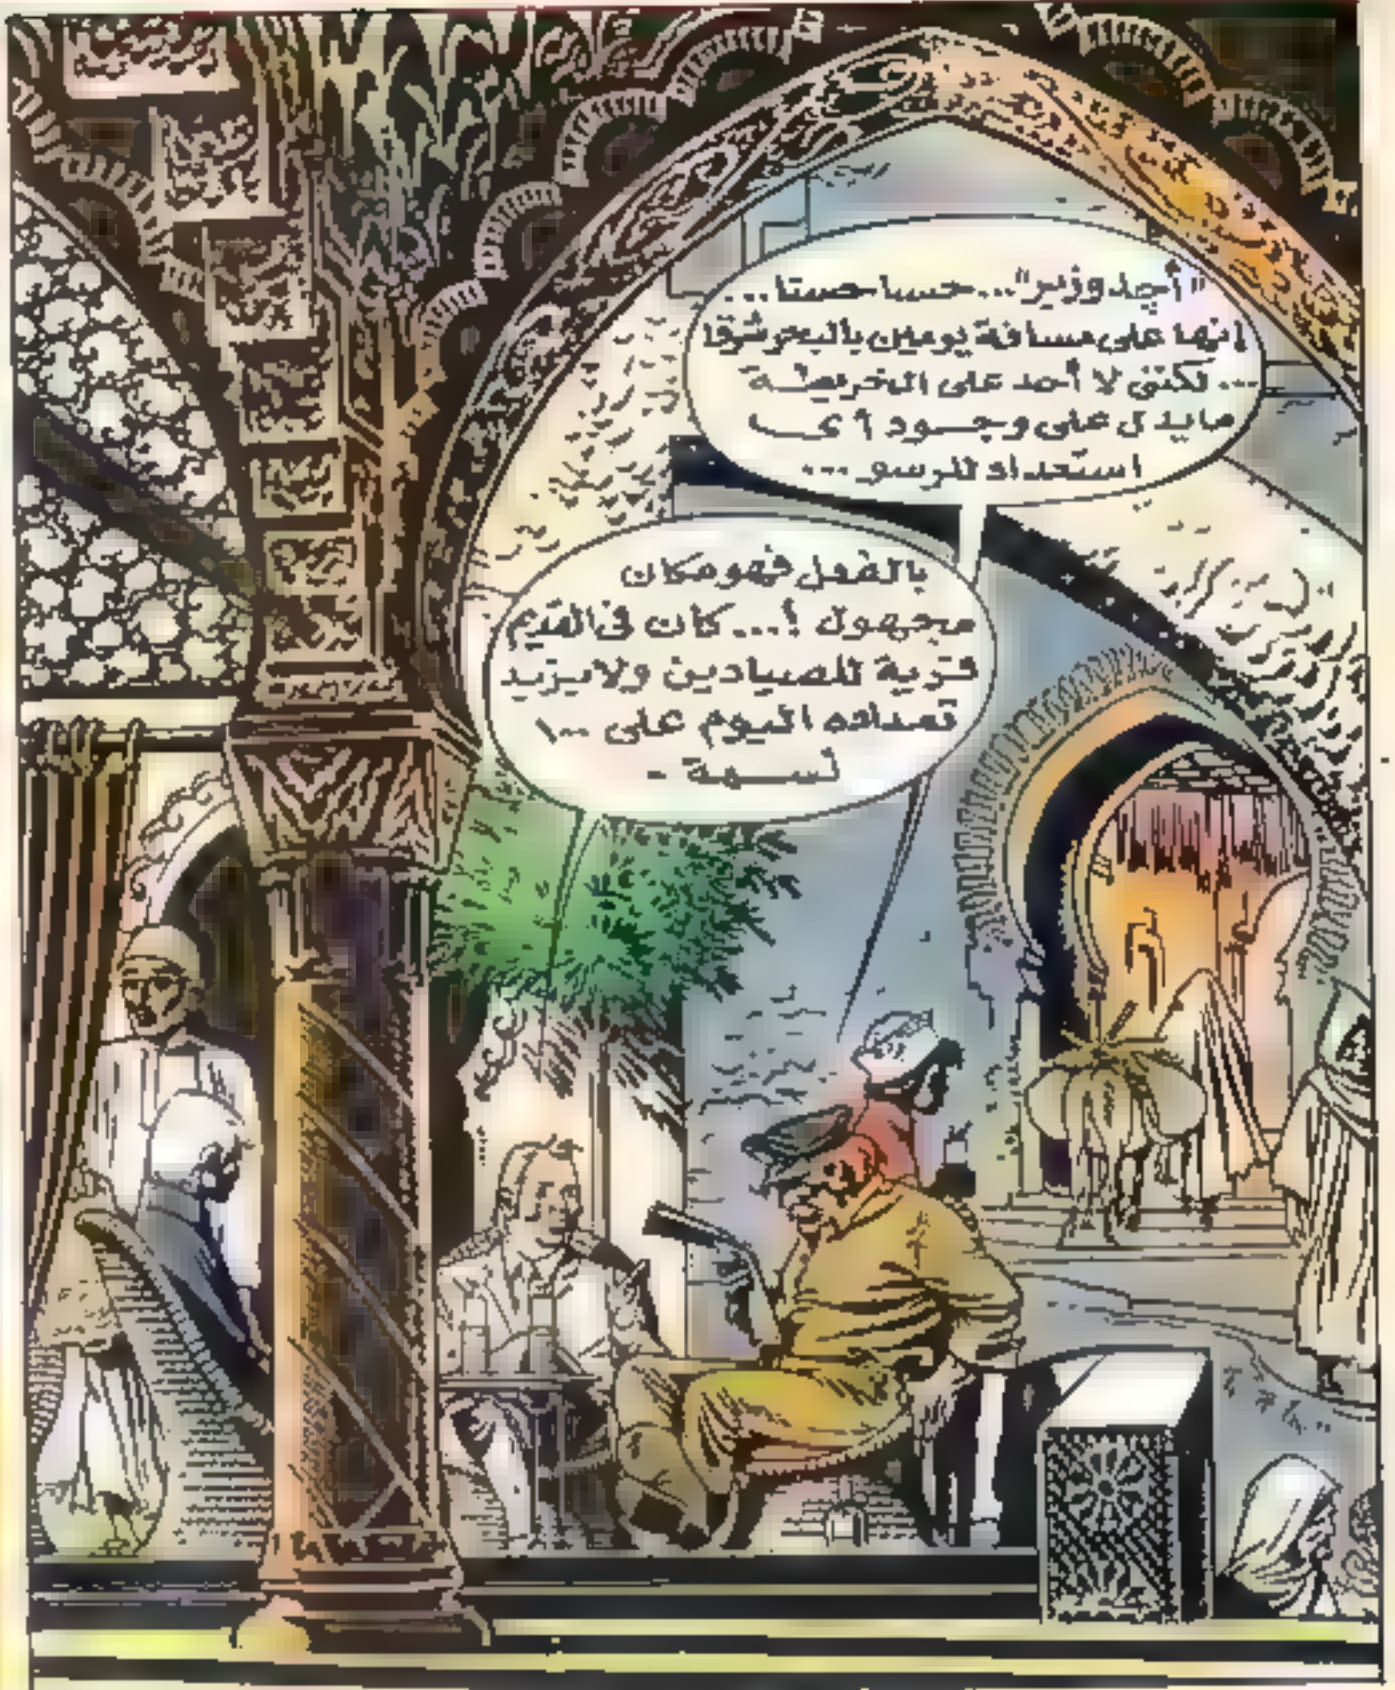 "أجدوزير"... حسنا حسنا...
إنها على مسافة يومين بالبحر شرقا
... لكنني لا أجد على الخريطة
مايدل على وجود أي
استعداد للرسو...
بالفعل فهو مكان
مجهول !... كان في القديم
قرية للصيادين ولا يزيد
تعداده اليوم على ١٠٠
نسمة -